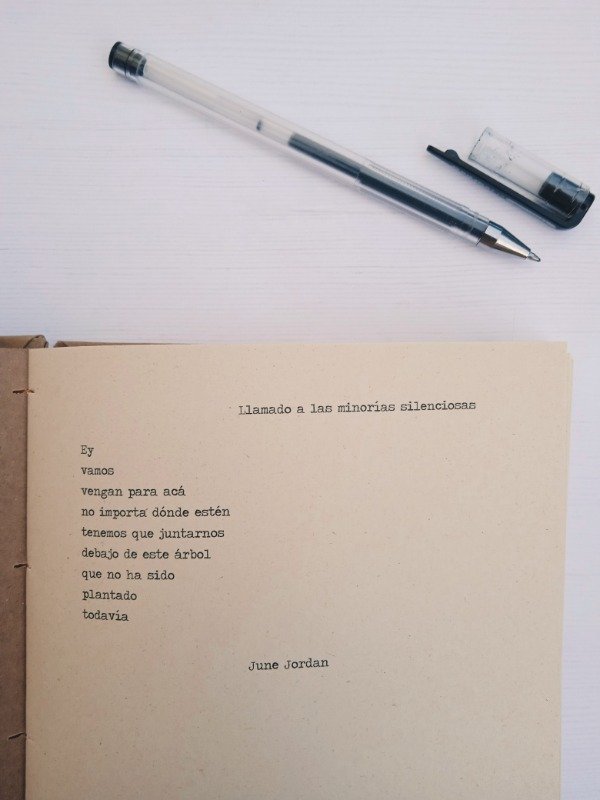 Llamado a las minorías silenciosas
Ey
vamos
vengan para acá
no importa dónde estén
tenemos que juntarnos
debajo de este árbol
que no ha sido
plantado
todavía
June Jordan